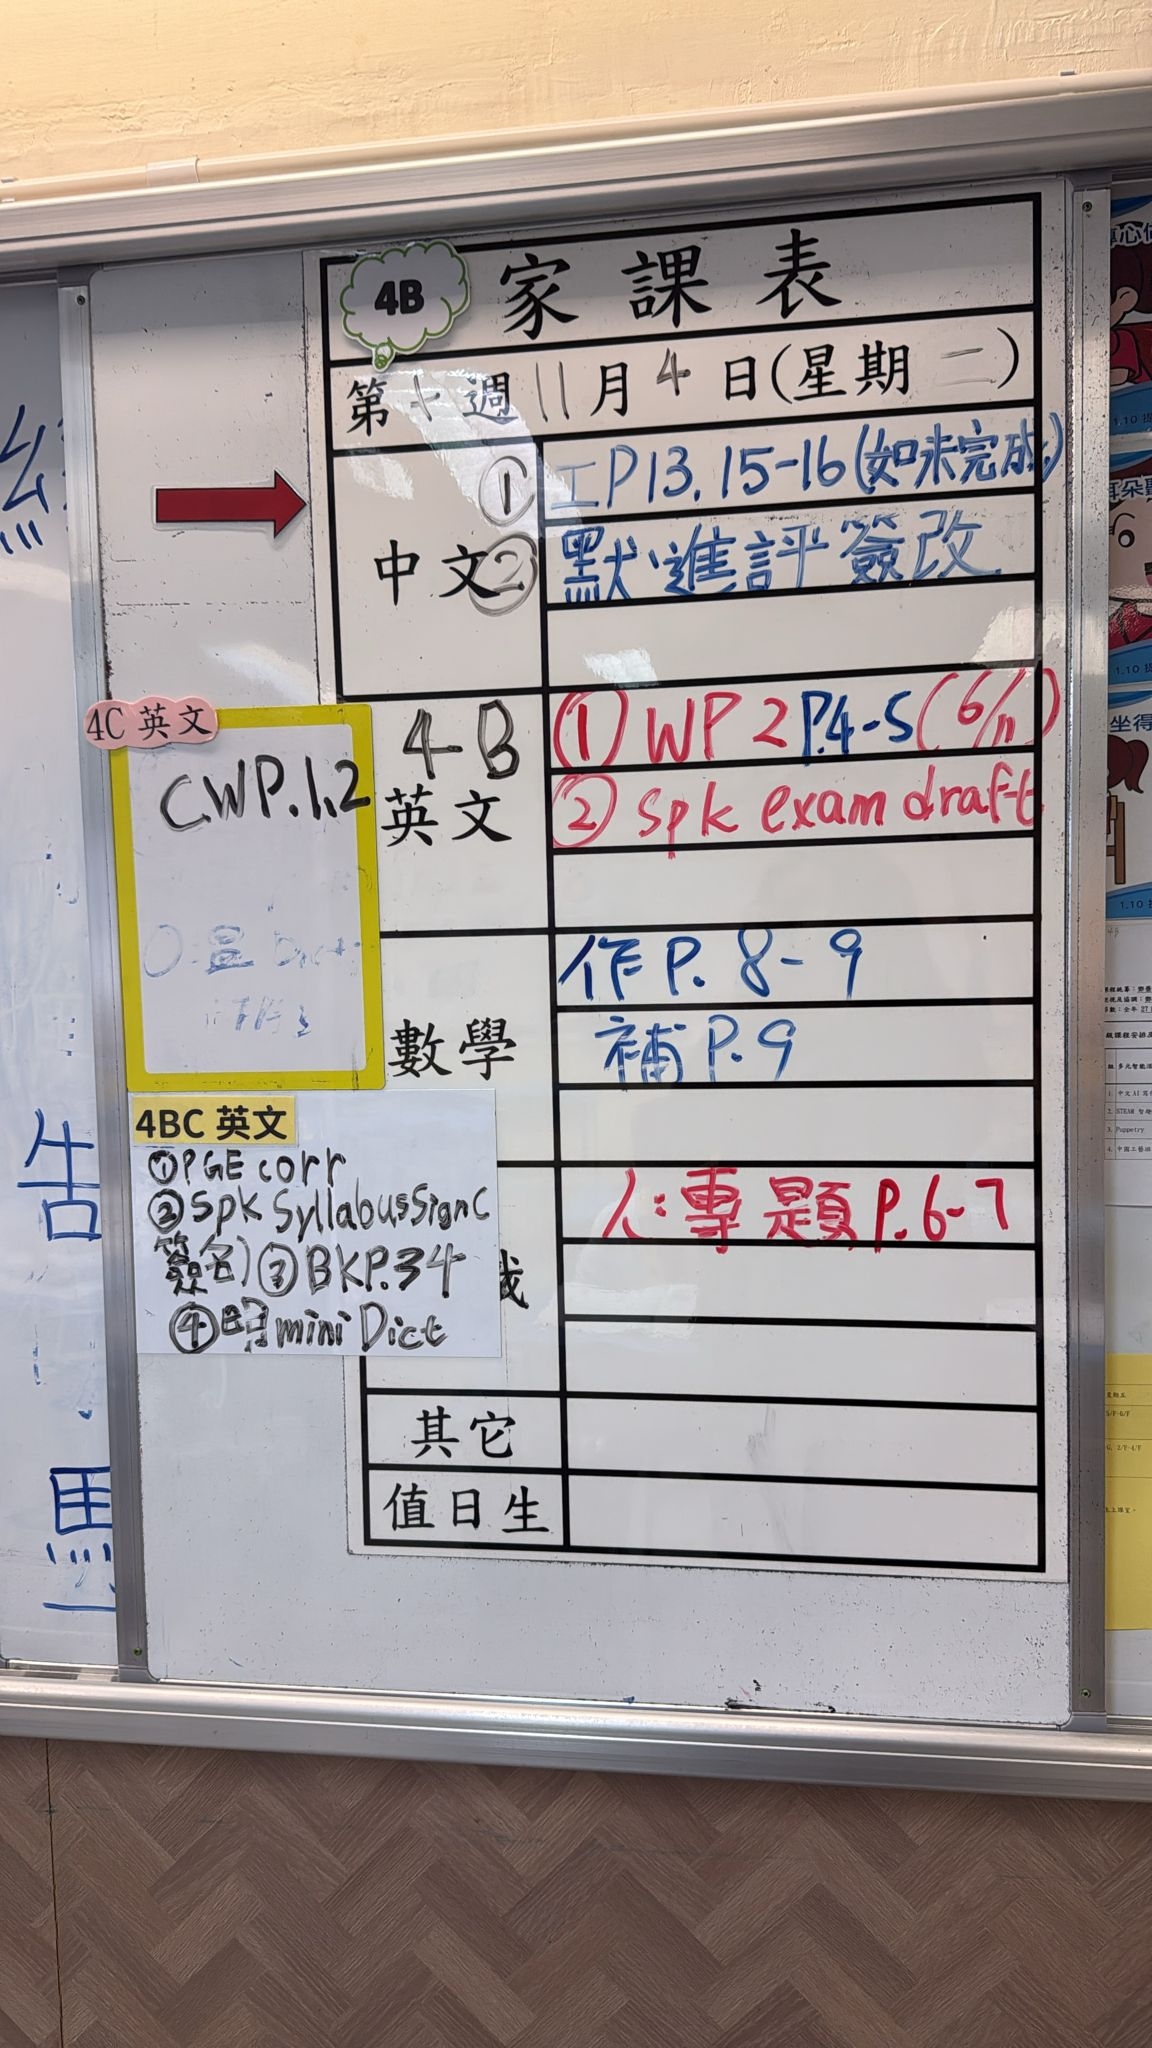 4B
家課表
第十週11月4日(星期二)
中文
① 工P13.15-16(如未完成)
② 默、進評簽改
4B
英文
① WP2 P.4-5(6/11)
② spk exam draft
4C 英文
C.WP.1,2
數學
作P. 8-9
補P.9
4BC 英文
① PGE corr
② spk Syllabus Sign(
簽名) ③ BKP.34
④ 明 mini Dict
我
人:專題P.6-7
其它
值日生
告
1.10
1.10
1.10
Puppetry